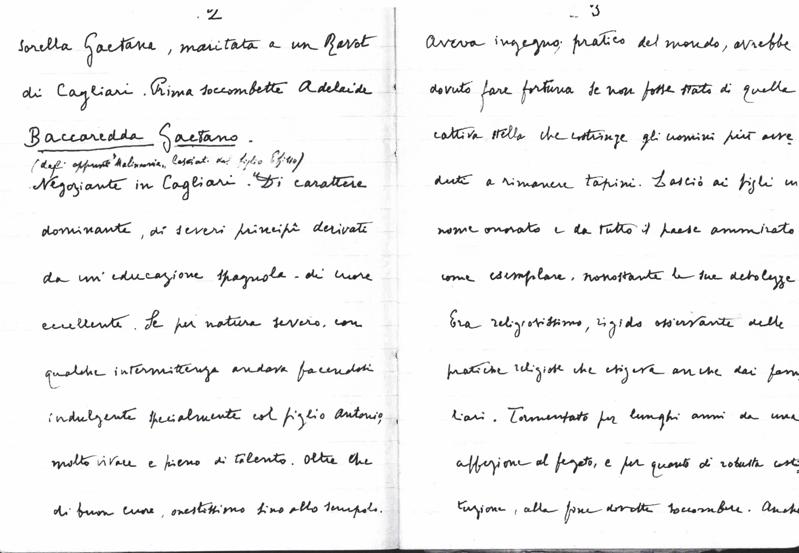 2
sorella Gaetana, maritata a un Ravot
di Cagliari. Prima soccombette Adelaide
Baccaredda Gaetano.
(dagli appunti "Malinconia" lasciati dal figlio Efisio)
Negoziante in Cagliari. "Di carattere
dominante, di severi principî derivati
da un'educazione spagnola - di cuore
eccellente. Se per natura severo, con
qualche intermittenza andava facendosi
indulgente specialmente col figlio Antonio,
molto vivace e pieno di talento. Oltre che
di buon cuore, onestissimo sino allo scrupolo.
3
Aveva ingegno, pratico del mondo, avrebbe
dovuto fare fortuna se non fosse stato di quella
cattiva stella che costringe gli uomini più avve
duti a rimanere tapini. Lasciò ai figli un
nome onorato e da tutto il paese ammirato
come esemplare, nonostante le sue debolezze
Era religiosissimo, rigido osservante delle
pratiche religiose che esigeva anche dai fam
liari. Tormentato per lunghi anni da una
affezione al fegato, e per quanto di robusta costi
tuzione, alla fine dovette soccombere. Anche